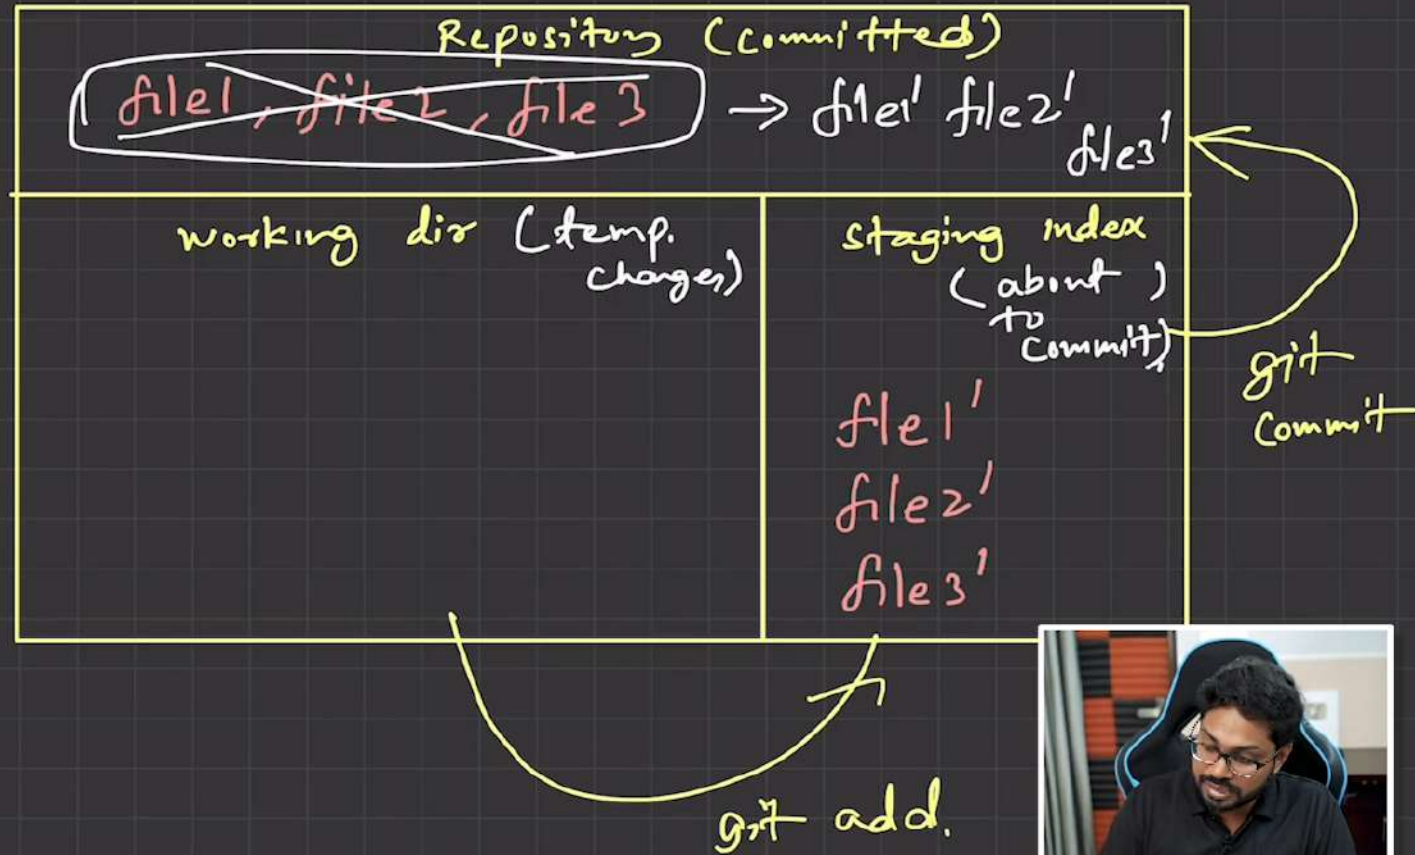 Repository (committed)
file1, file2, file3 → file1' file2'
file3'
working dir (temp.
changes)
staging index
(about )
to
commit)
git
commit
file1'
file2'
file3'
git add.